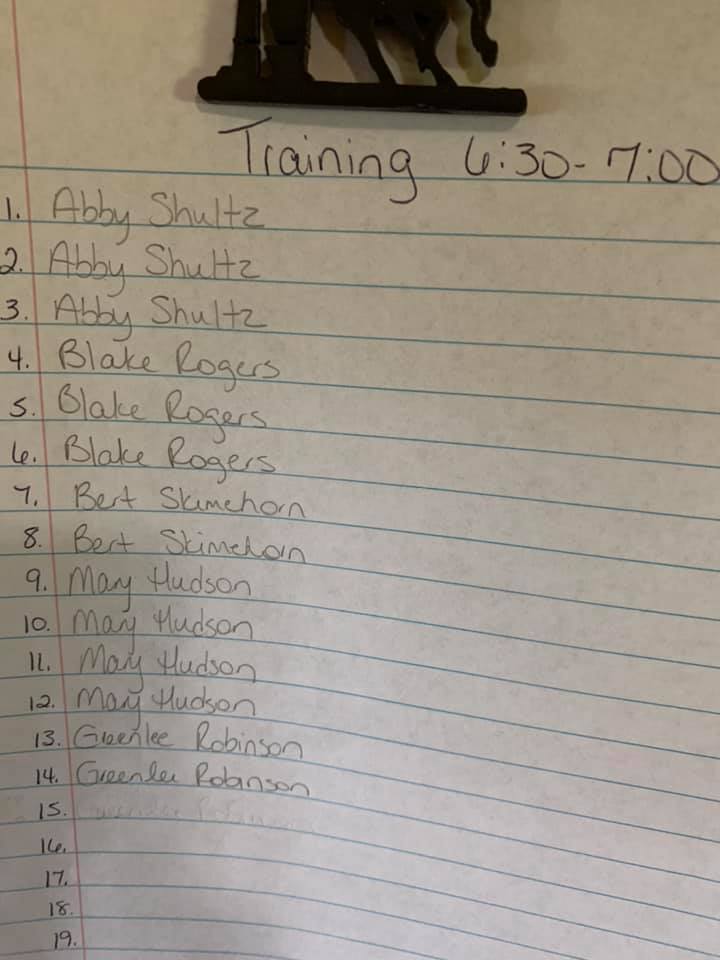 Training 6:30-7:00
1. Abby Shultz
2. Abby Shultz
3. Abby Shultz
4. Blake Rogers
5. Blake Rogers
6. Blake Rogers
7. Bert Skimehorn
8. Bert Skimehorn
9. Mary Hudson
10. Mary Hudson
11. Mary Hudson
12. Mary Hudson
13. Greenlee Robinson
14. Greenlee Robinson
15.
16.
17.
18.
19.